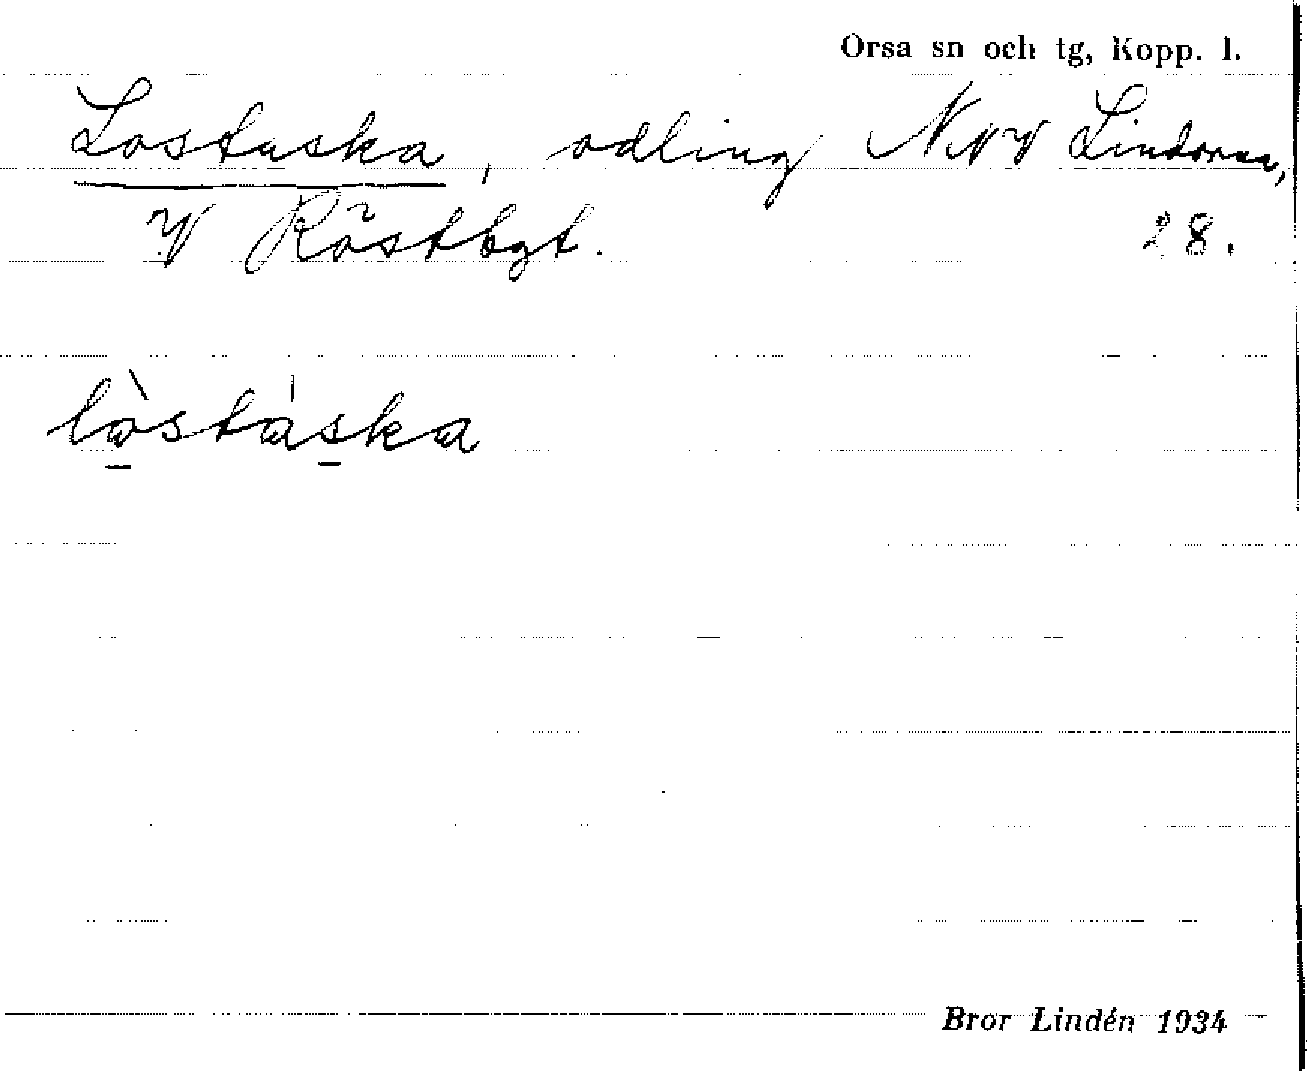 Orsa sn och tg, Kopp. l.
Lostaska, odling NNV Lindorna,
V Röstbgt. 28.
lòstáska
Bror Lindén 1934